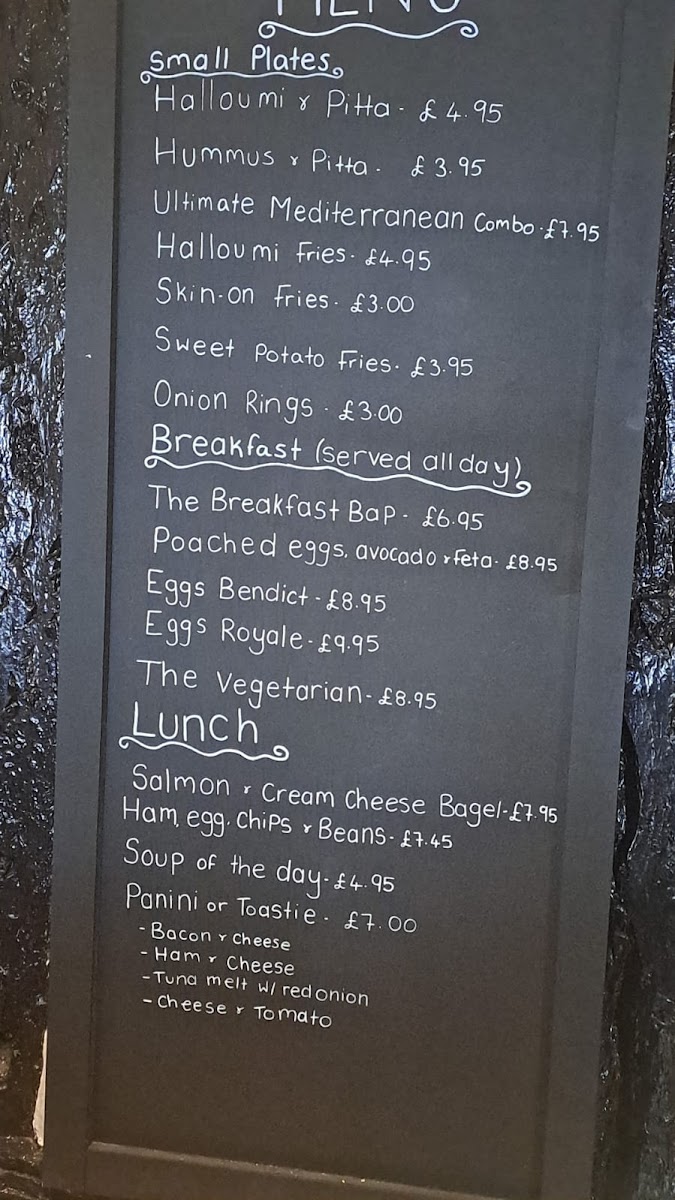 MENU
Small Plates
Halloumi & Pitta - £4.95
Hummus & Pitta - £3.95
Ultimate Mediterranean Combo - £7.95
Halloumi Fries - £4.95
Skin-on Fries - £3.00
Sweet Potato Fries - £3.95
Onion Rings - £3.00
Breakfast (served all day)
The Breakfast Bap - £6.95
Poached eggs, avocado & feta - £8.95
Eggs Bendict - £8.95
Eggs Royale - £9.95
The Vegetarian - £8.95
Lunch
Salmon & Cream Cheese Bagel - £7.95
Ham, egg, Chips & Beans - £7.45
Soup of the day - £4.95
Panini or Toastie - £7.00
- Bacon & Cheese
- Ham & Cheese
- Tuna melt w/ red onion
- Cheese & Tomato